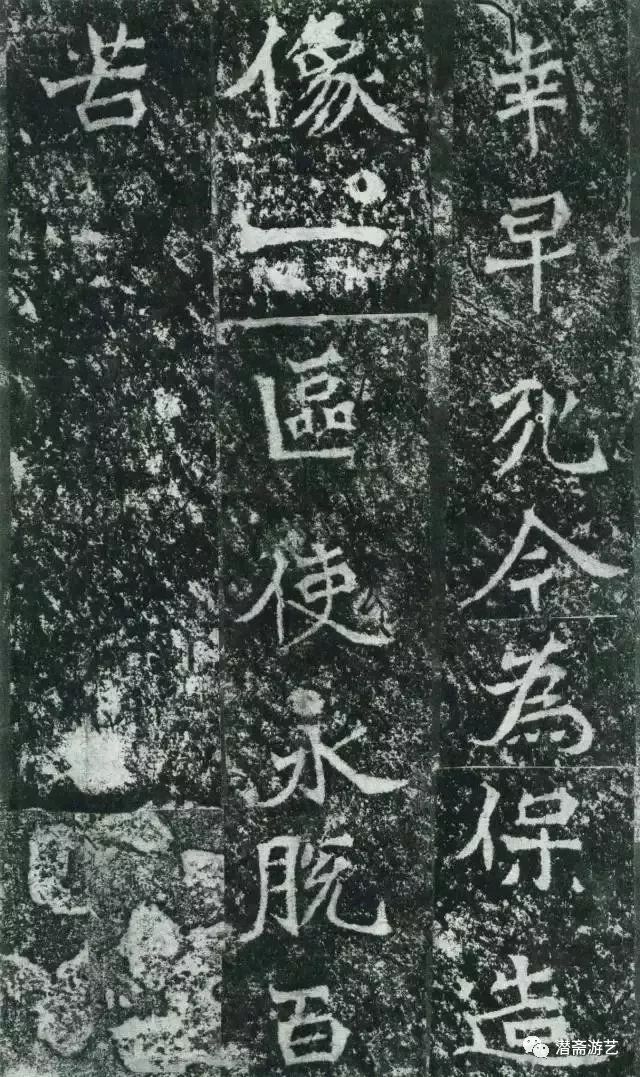 幸早死今為保造
像一區使永脱百
苦
潜斋游艺